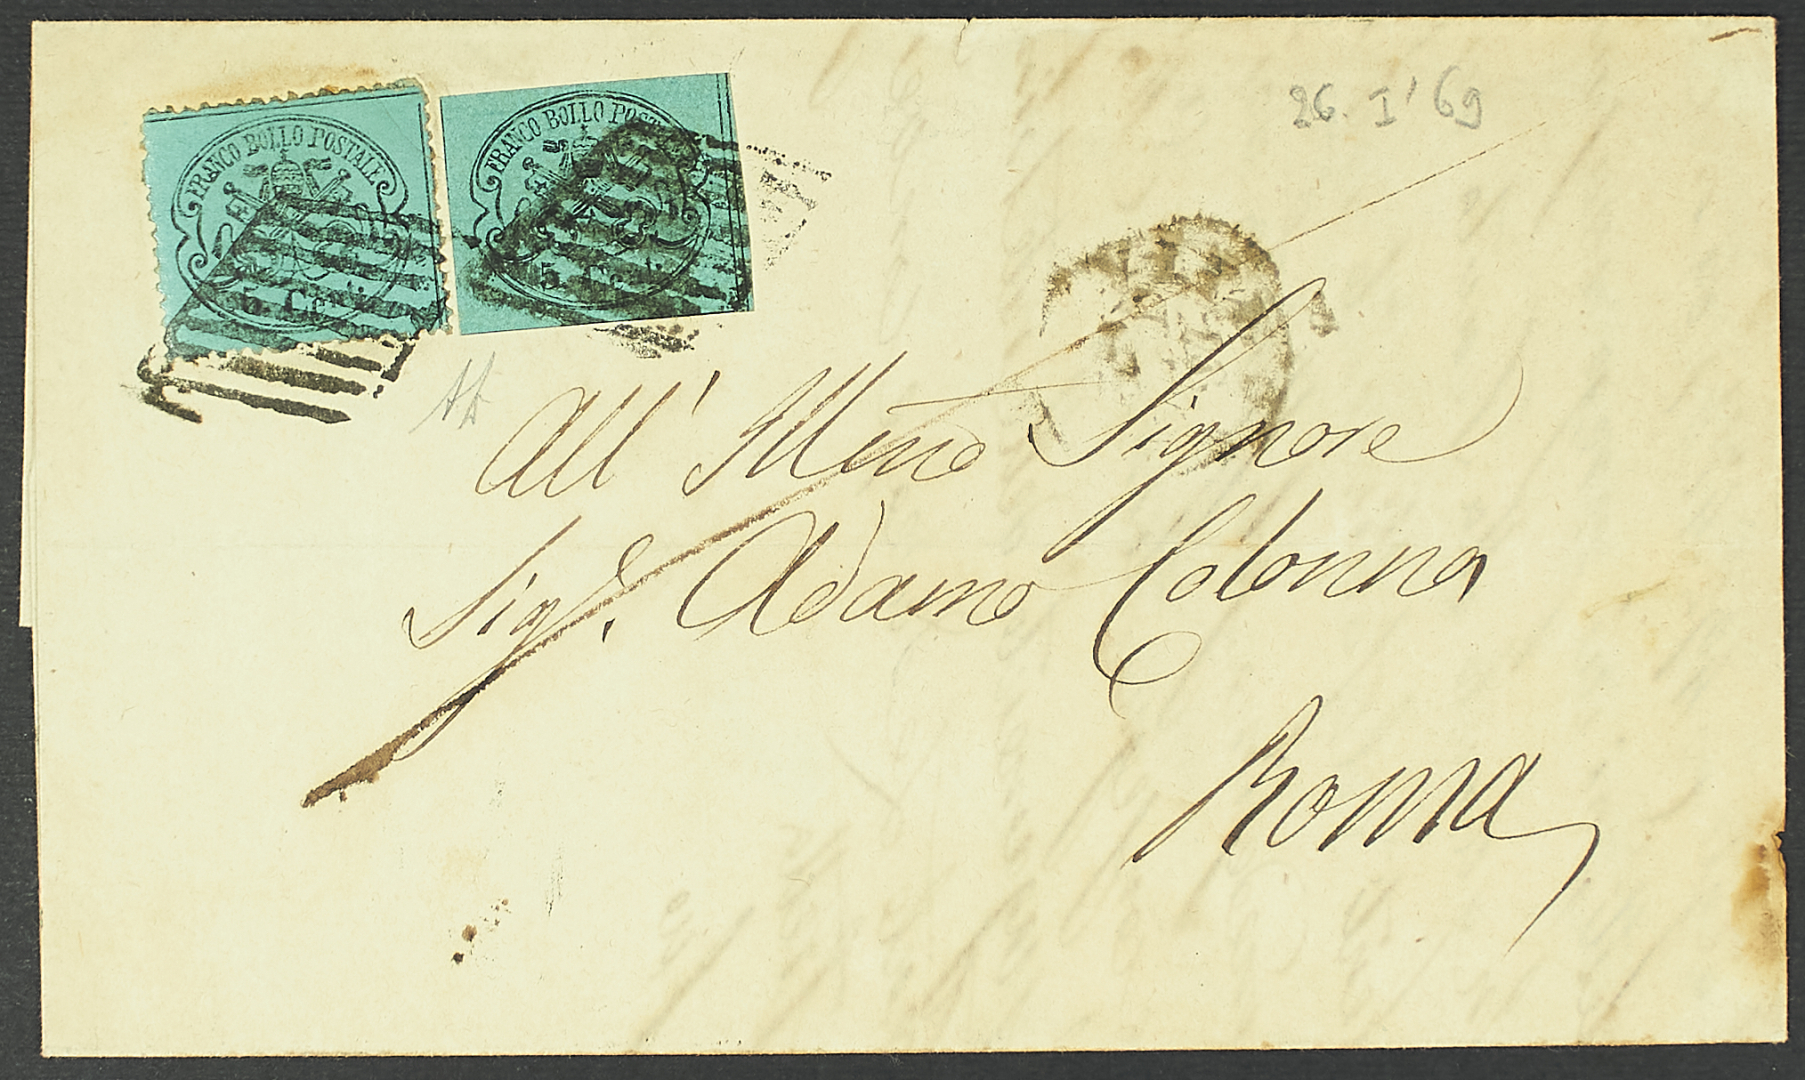 FRANCO BOLLO POSTALE
5 Centi
FRANCO BOLLO POSTALE
5 Centi
26. I' 69
All' Illmo Signore
Sigr. Adamo Colonna
Roma